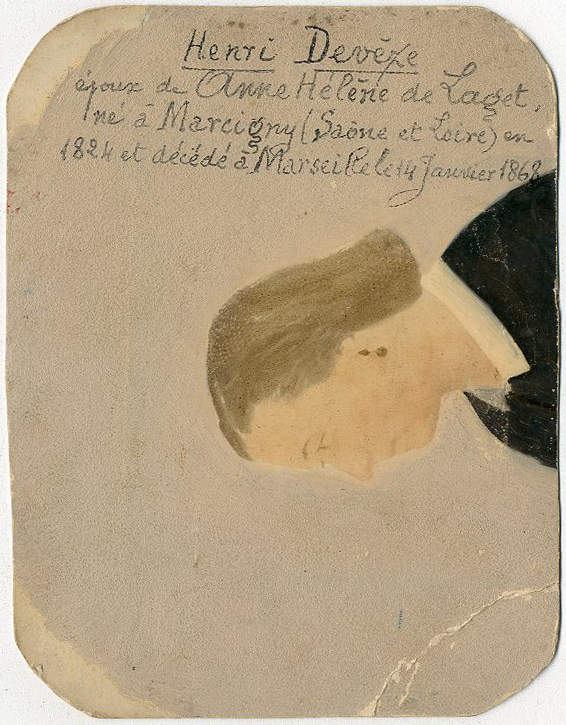 Henri Devèze
époux de Anne Hélène de Laget,
né à Marcigny (Saône et Loire) en
1824 et décédé à Marseille le 14 Janvier 1868